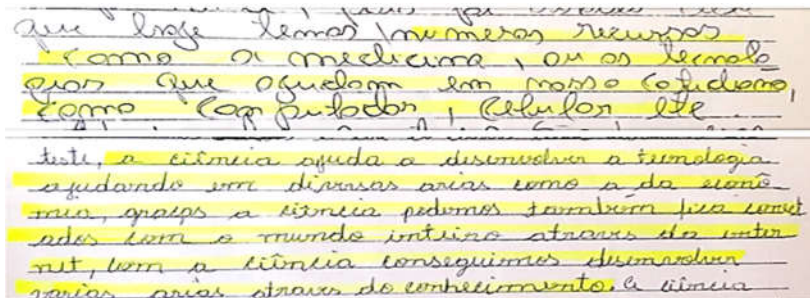 que hoje temos inumeros recursos
como a medicina, ou as tecnolo
gias que ajudam em nosso cotidiano,
como computador, celular etc.
teste, a ciência ajuda a desenvolver a tecnologia
ajudando em diversas arias como a da econô
mia, graças a ciência podemos também fica conect
ados com o mundo inteiro atraves da inter
net, com a ciência conseguimos desenvolver
varias arias atraves do conhecimento. A ciência